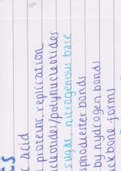 cs
c acid
proteins, replication
cleotides/polynucleotides
sugar, nitrogenous base
phodiester bonds
by hydrogen bonds
ckbone forms